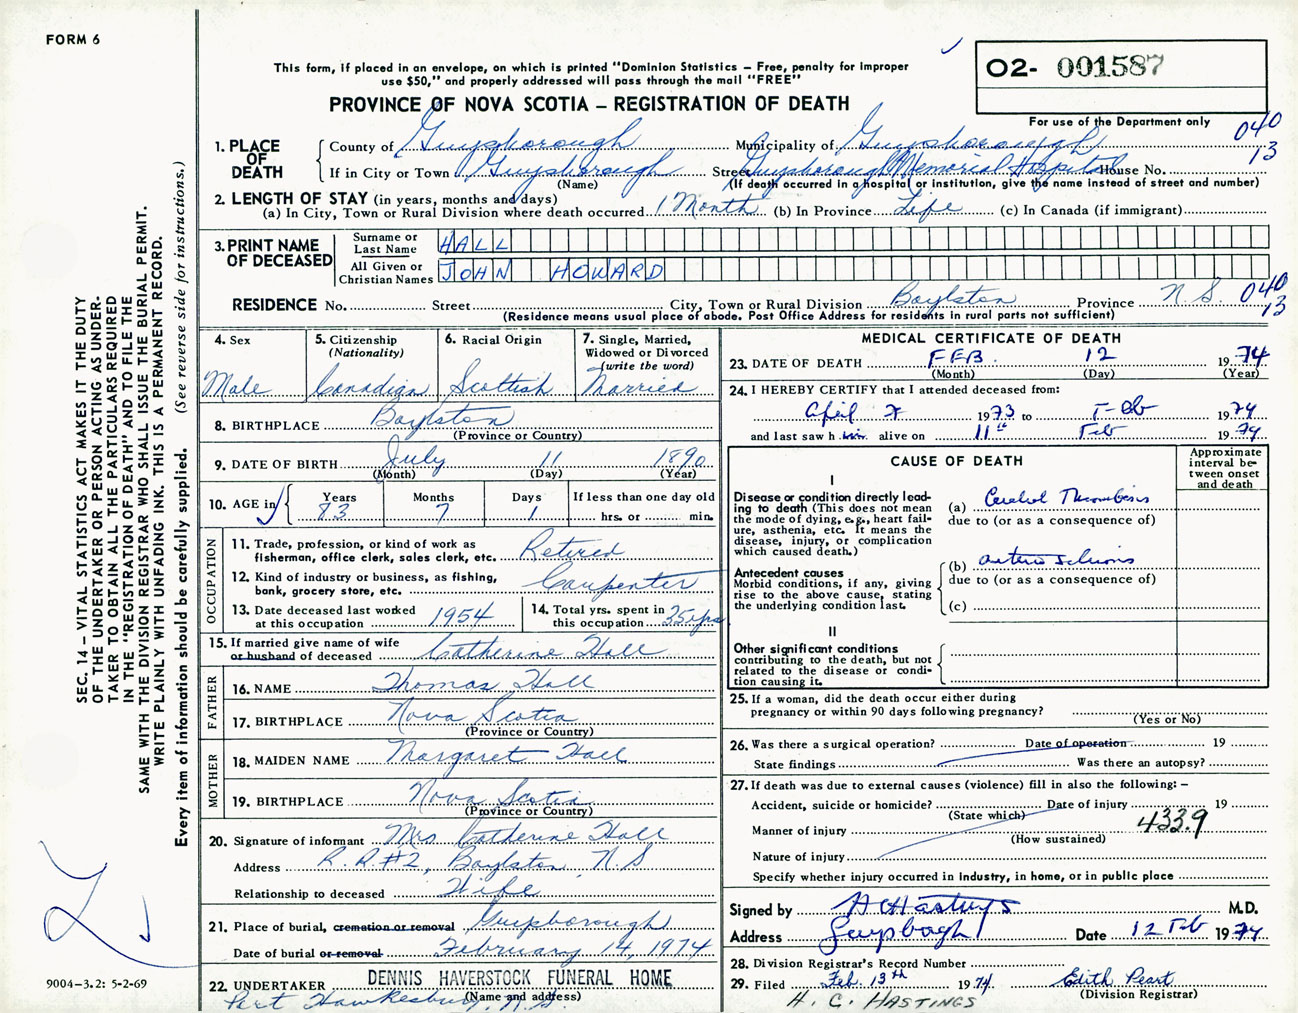 FORM 6
This form, if placed in an envelope, on which is printed "Dominion Statistics – Free, penalty for improper
use $50," and properly addressed will pass through the mail "FREE"
PROVINCE OF NOVA SCOTIA – REGISTRATION OF DEATH
O2- 001587
For use of the Department only
040
13
1. PLACE OF DEATH
County of Guysborough Municipality of Guysborough
If in City or Town Guysborough Street Guysborough Memorial Hospital House No.
(Name) (If death occurred in a hospital or institution, give the name instead of street and number)
2. LENGTH OF STAY (in years, months and days)
(a) In City, Town or Rural Division where death occurred 1 Month (b) In Province Life (c) In Canada (if immigrant)
3. PRINT NAME OF DECEASED
Surname or Last Name HALL
All Given or Christian Names JOHN HOWARD
RESIDENCE No. Street City, Town or Rural Division Boylston Province N.S. 040
13
(Residence means usual place of abode. Post Office Address for residents in rural parts not sufficient)
4. Sex
Male
5. Citizenship
(Nationality)
Canadian
6. Racial Origin
Scottish
7. Single, Married,
Widowed or Divorced
(write the word)
Married
8. BIRTHPLACE Boylston
(Province or Country)
9. DATE OF BIRTH July 11 1890
(Month) (Day) (Year)
10. AGE in
Years Months Days If less than one day old
83 7 1 hrs. or min.
OCCUPATION
11. Trade, profession, or kind of work as
fisherman, office clerk, sales clerk, etc. Retired
12. Kind of industry or business, as fishing,
bank, grocery store, etc. Carpenter
13. Date deceased last worked
at this occupation 1954
14. Total yrs. spent in
this occupation 35 yrs
15. If married give name of wife
or husband of deceased Catherine Hall
FATHER
16. NAME Thomas Hall
17. BIRTHPLACE Nova Scotia
(Province or Country)
MOTHER
18. MAIDEN NAME Margaret Hall
19. BIRTHPLACE Nova Scotia
(Province or Country)
20. Signature of informant Mrs Catherine Hall
Address R.R.#2, Boylston, N.S
Relationship to deceased Wife
21. Place of burial, cremation or removal Guysborough
Date of burial or removal February 14, 1974
22. UNDERTAKER DENNIS HAVERSTOCK FUNERAL HOME
(Name and address)
Port Hawkesbury, N.S.
MEDICAL CERTIFICATE OF DEATH
23. DATE OF DEATH FEB. 12 1974
(Month) (Day) (Year)
24. I HEREBY CERTIFY that I attended deceased from:
April 1973 to Feb 1974
and last saw h im alive on 11th Feb 1974
CAUSE OF DEATH
Approximate
interval be-
tween onset
and death
I
Disease or condition directly lead-
ing to death (This does not mean
the mode of dying, e.g., heart fail-
ure, asthenia, etc. It means the
disease, injury, or complication
which caused death.)
(a) Cerebral Thrombosis
due to (or as a consequence of)
Antecedent causes
Morbid conditions, if any, giving
rise to the above cause, stating
the underlying condition last.
(b)
due to (or as a consequence of)
(c)
II
Other significant conditions
contributing to the death, but not
related to the disease or condi-
tion causing it.
25. If a woman, did the death occur either during
pregnancy or within 90 days following pregnancy?
(Yes or No)
26. Was there a surgical operation? Date of operation 19
State findings Was there an autopsy?
27. If death was due to external causes (violence) fill in also the following: –
Accident, suicide or homicide? Date of injury 19
(State which)
Manner of injury 433.9
(How sustained)
Nature of injury
Specify whether injury occurred in industry, in home, or in public place
Signed by A C Hastings M.D.
Address Date 12 Feb 1974
28. Division Registrar's Record Number
29. Filed Feb. 13th 1974 Edith Peart
(Division Registrar)
H. C. HASTINGS
SEC. 14 – VITAL STATISTICS ACT MAKES IT THE DUTY
OF THE UNDERTAKER OR PERSON ACTING AS UNDER-
TAKER TO OBTAIN ALL THE PARTICULARS REQUIRED
IN THE "REGISTRATION OF DEATH" AND TO FILE THE
SAME WITH THE DIVISION REGISTRAR WHO SHALL ISSUE THE BURIAL PERMIT.
WRITE PLAINLY WITH UNFADING INK. THIS IS A PERMANENT RECORD.
Every item of information should be carefully supplied. (See reverse side for instructions.)
9004–3.2: 5-2-69